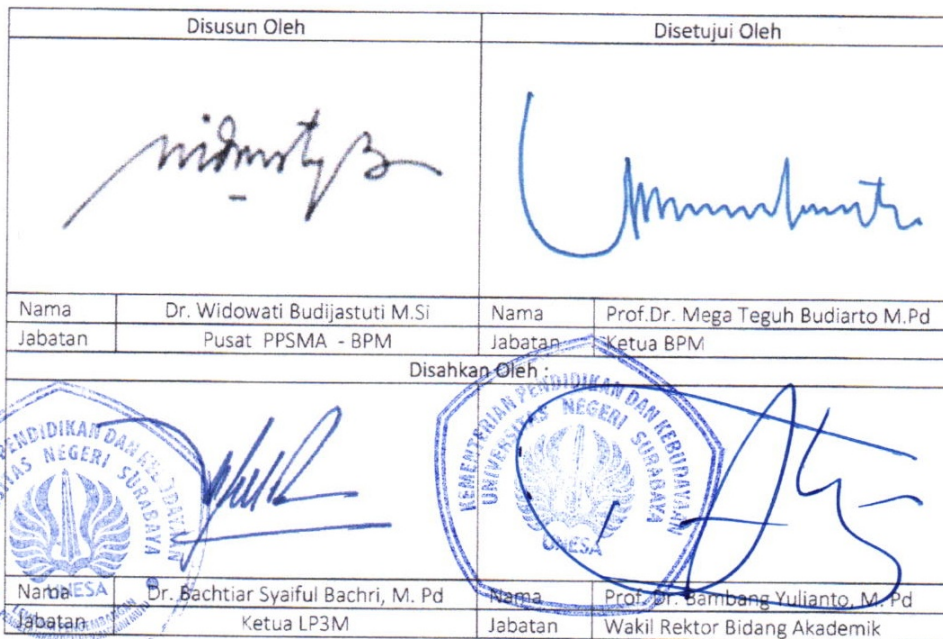 Disusun Oleh Disetujui Oleh
Nama Dr. Widowati Budijastuti M.Si Nama Prof.Dr. Mega Teguh Budiarto M.Pd
Jabatan Pusat PPSMA - BPM Jabatan Ketua BPM
Disahkan Oleh :
PENDIDIKAN DAN
NEGERI SURABAYA
UNESA
KEMENTERIAN PENDIDIKAN DAN KEBUDAYAAN
UNIVERSITAS NEGERI SURABAYA
UNESA
Nama Dr. Bachtiar Syaiful Bachri, M. Pd Nama Prof. Dr. Bambang Yulianto, M. Pd
Jabatan Ketua LP3M Jabatan Wakil Rektor Bidang Akademik